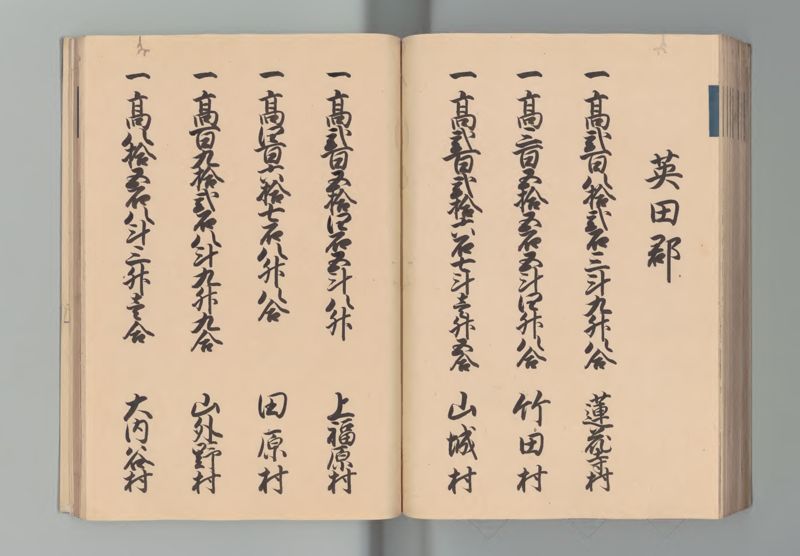 英田郡
一高弐百八拾弐石三斗九升八合 蓮花寺村
一高三百五拾五石五斗四升八合 竹田村
一高弐百弐拾六石七斗壱升五合 山城村
一高弐百五拾四石五斗八升 上福原村
一高四百六拾七石八升八合 田原村
一高百九拾弐石八斗九升九合 山外野村
一高八拾五石八斗三升壱合 大内谷村